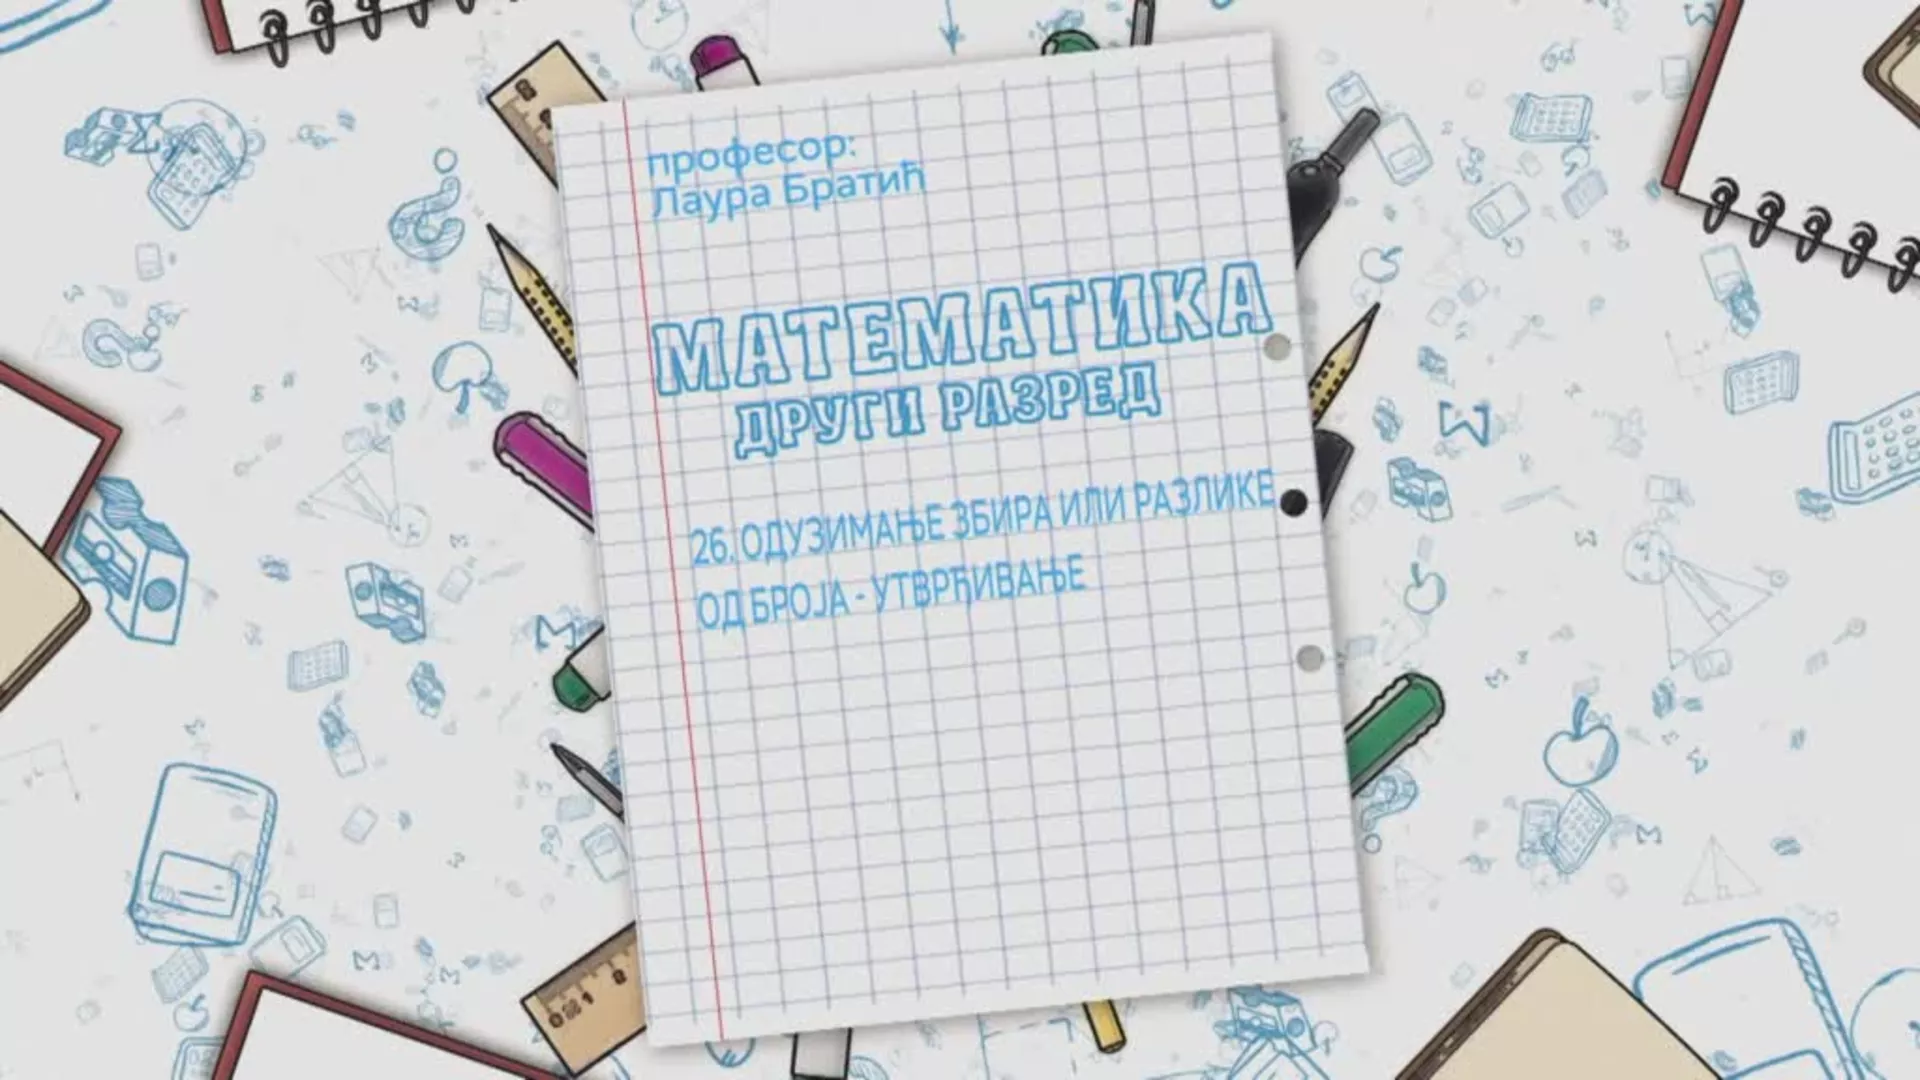 професор:
Лаура Братић
МАТЕМАТИКА
ДРУГИ РАЗРЕД
26. ОДУЗИМАЊЕ ЗБИРА ИЛИ РАЗЛИКЕ
ОД БРОЈА - УТВРЂИВАЊЕ